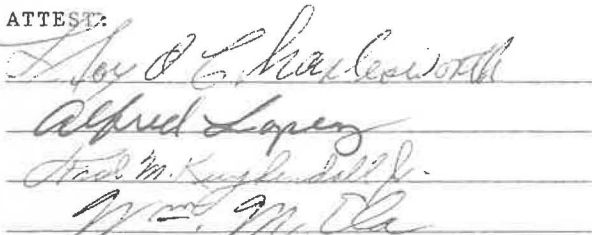 ATTEST:
O Charlesworth
Alfred Lopez
Fred M. Kuykendall Jr.
Wm. M. Ela